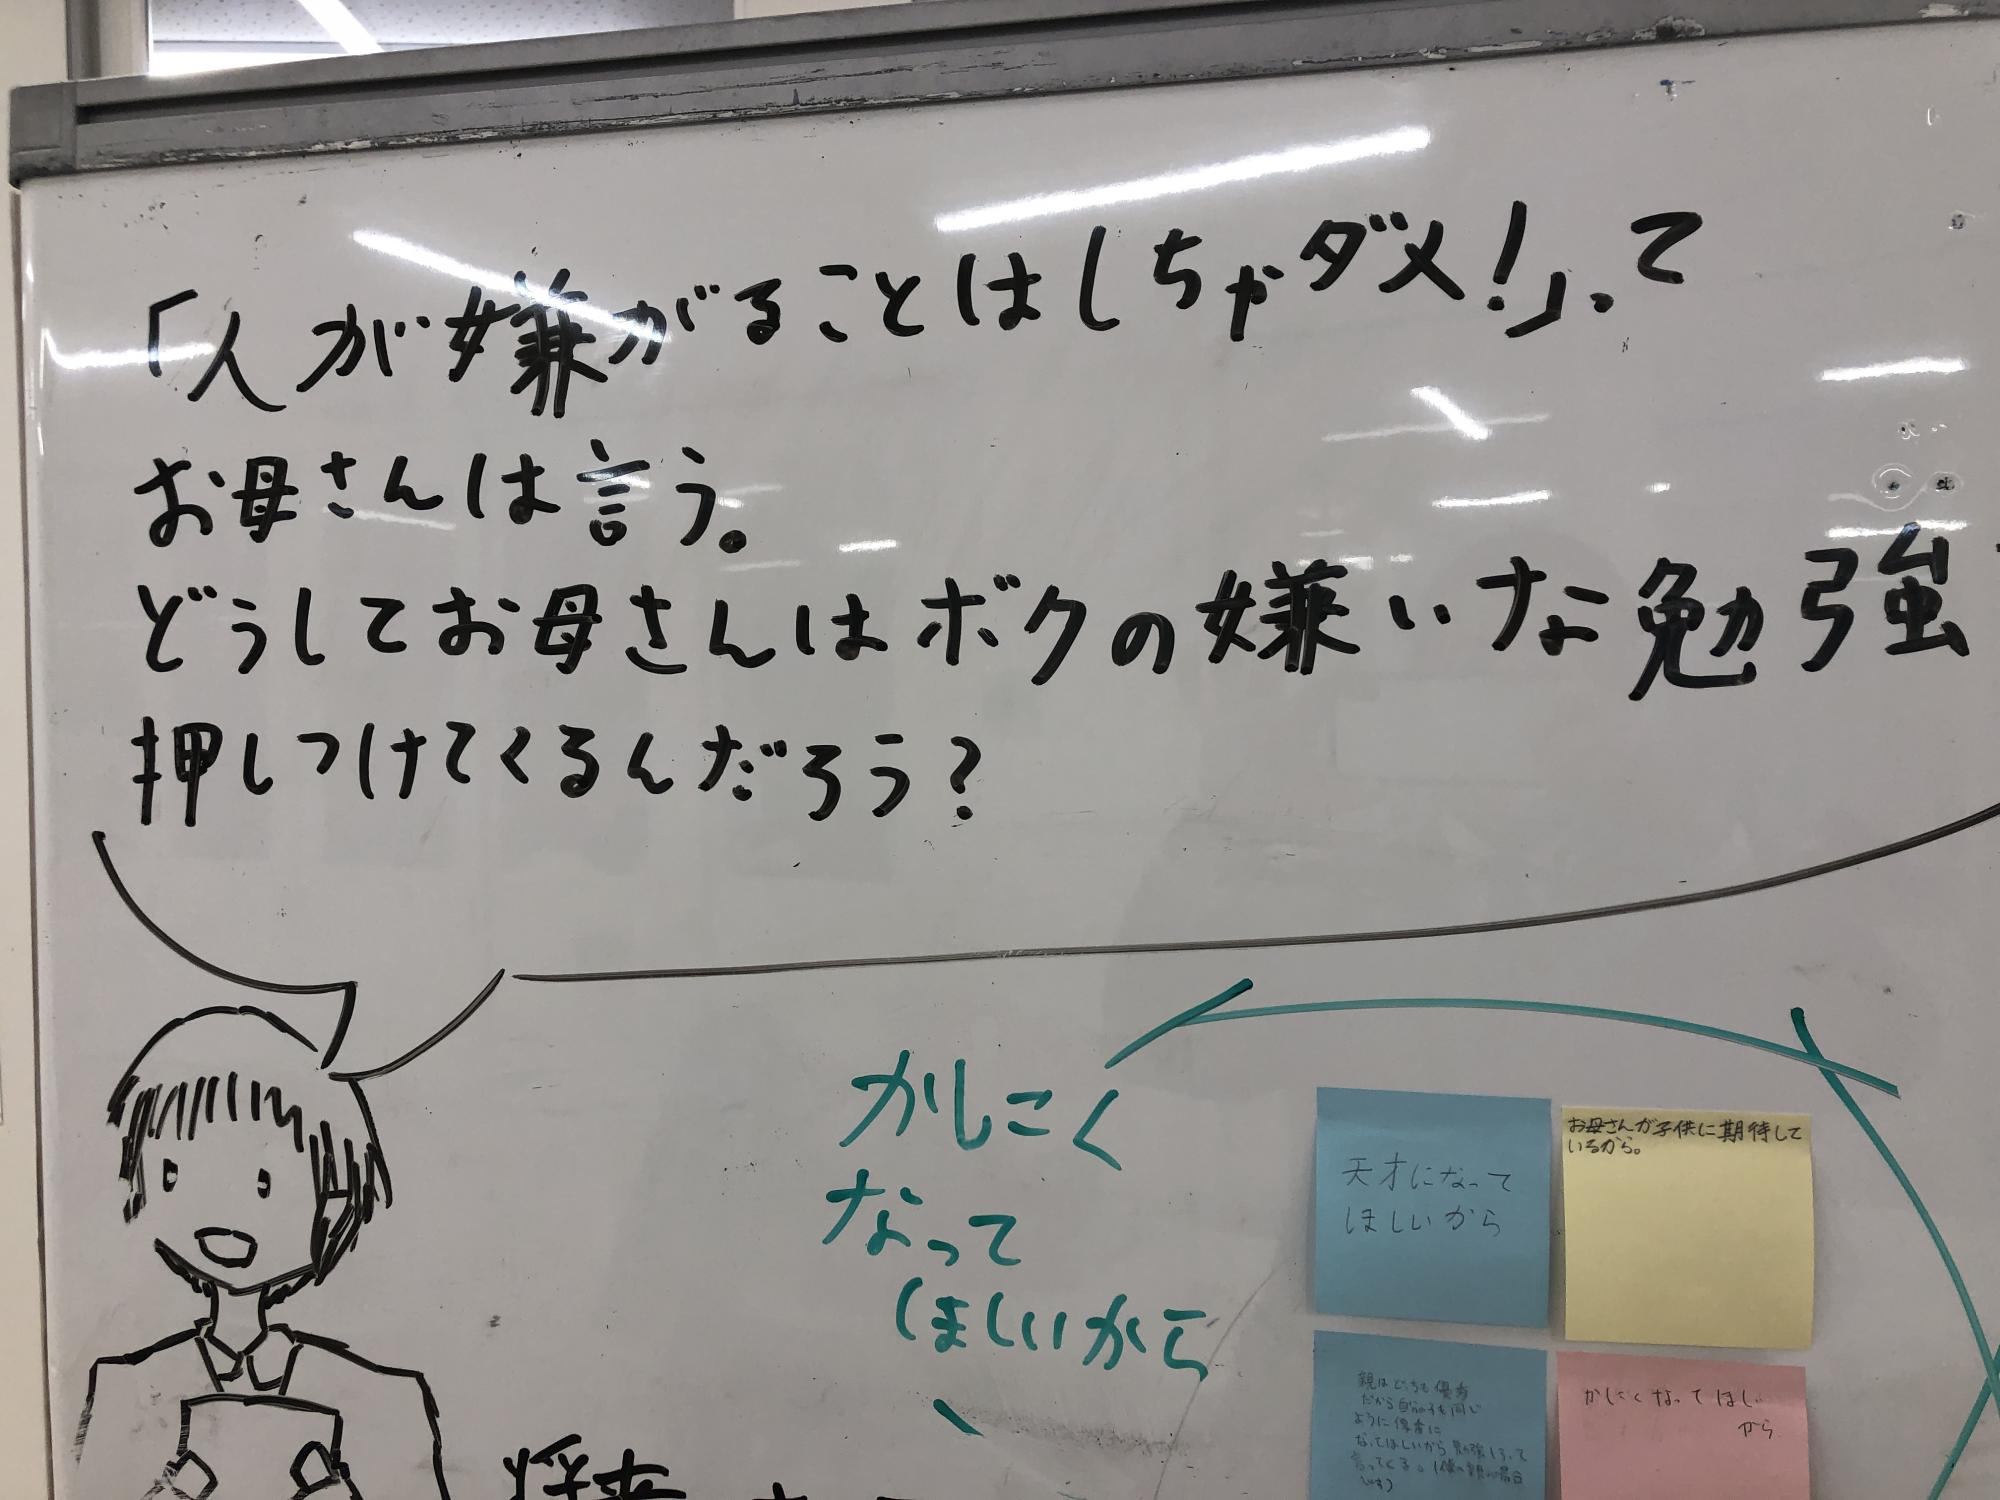 「人が嫌がることはしちゃダメ！」って
お母さんは言う。
どうしてお母さんはボクの嫌いな勉強
押しつけてくるんだろう？
かしこく
なって
ほしいから
天才になって
ほしいから
お母さんが子供に期待して
いるから。
親はどっちも優秀
だから自分の子も同じ
ように優秀に
なってほしいから勉強しろって
言ってくる。(僕の親の場合
です)
かしこくなってほしい
から
将来